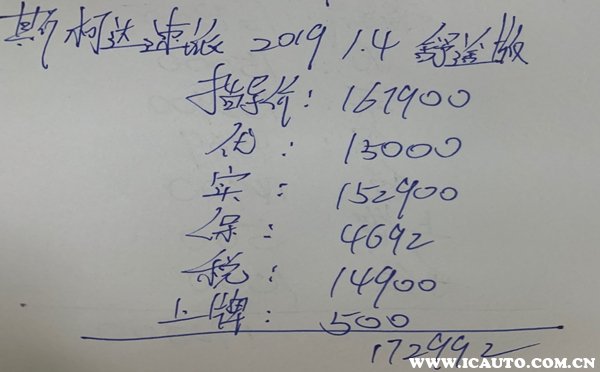 斯柯达速派 2019 1.4 舒适版
指导价: 167900
优: 15000
实: 152900
保: 4692
税: 14900
上牌: 500
172992
WWW.ICAUTO.COM.CN